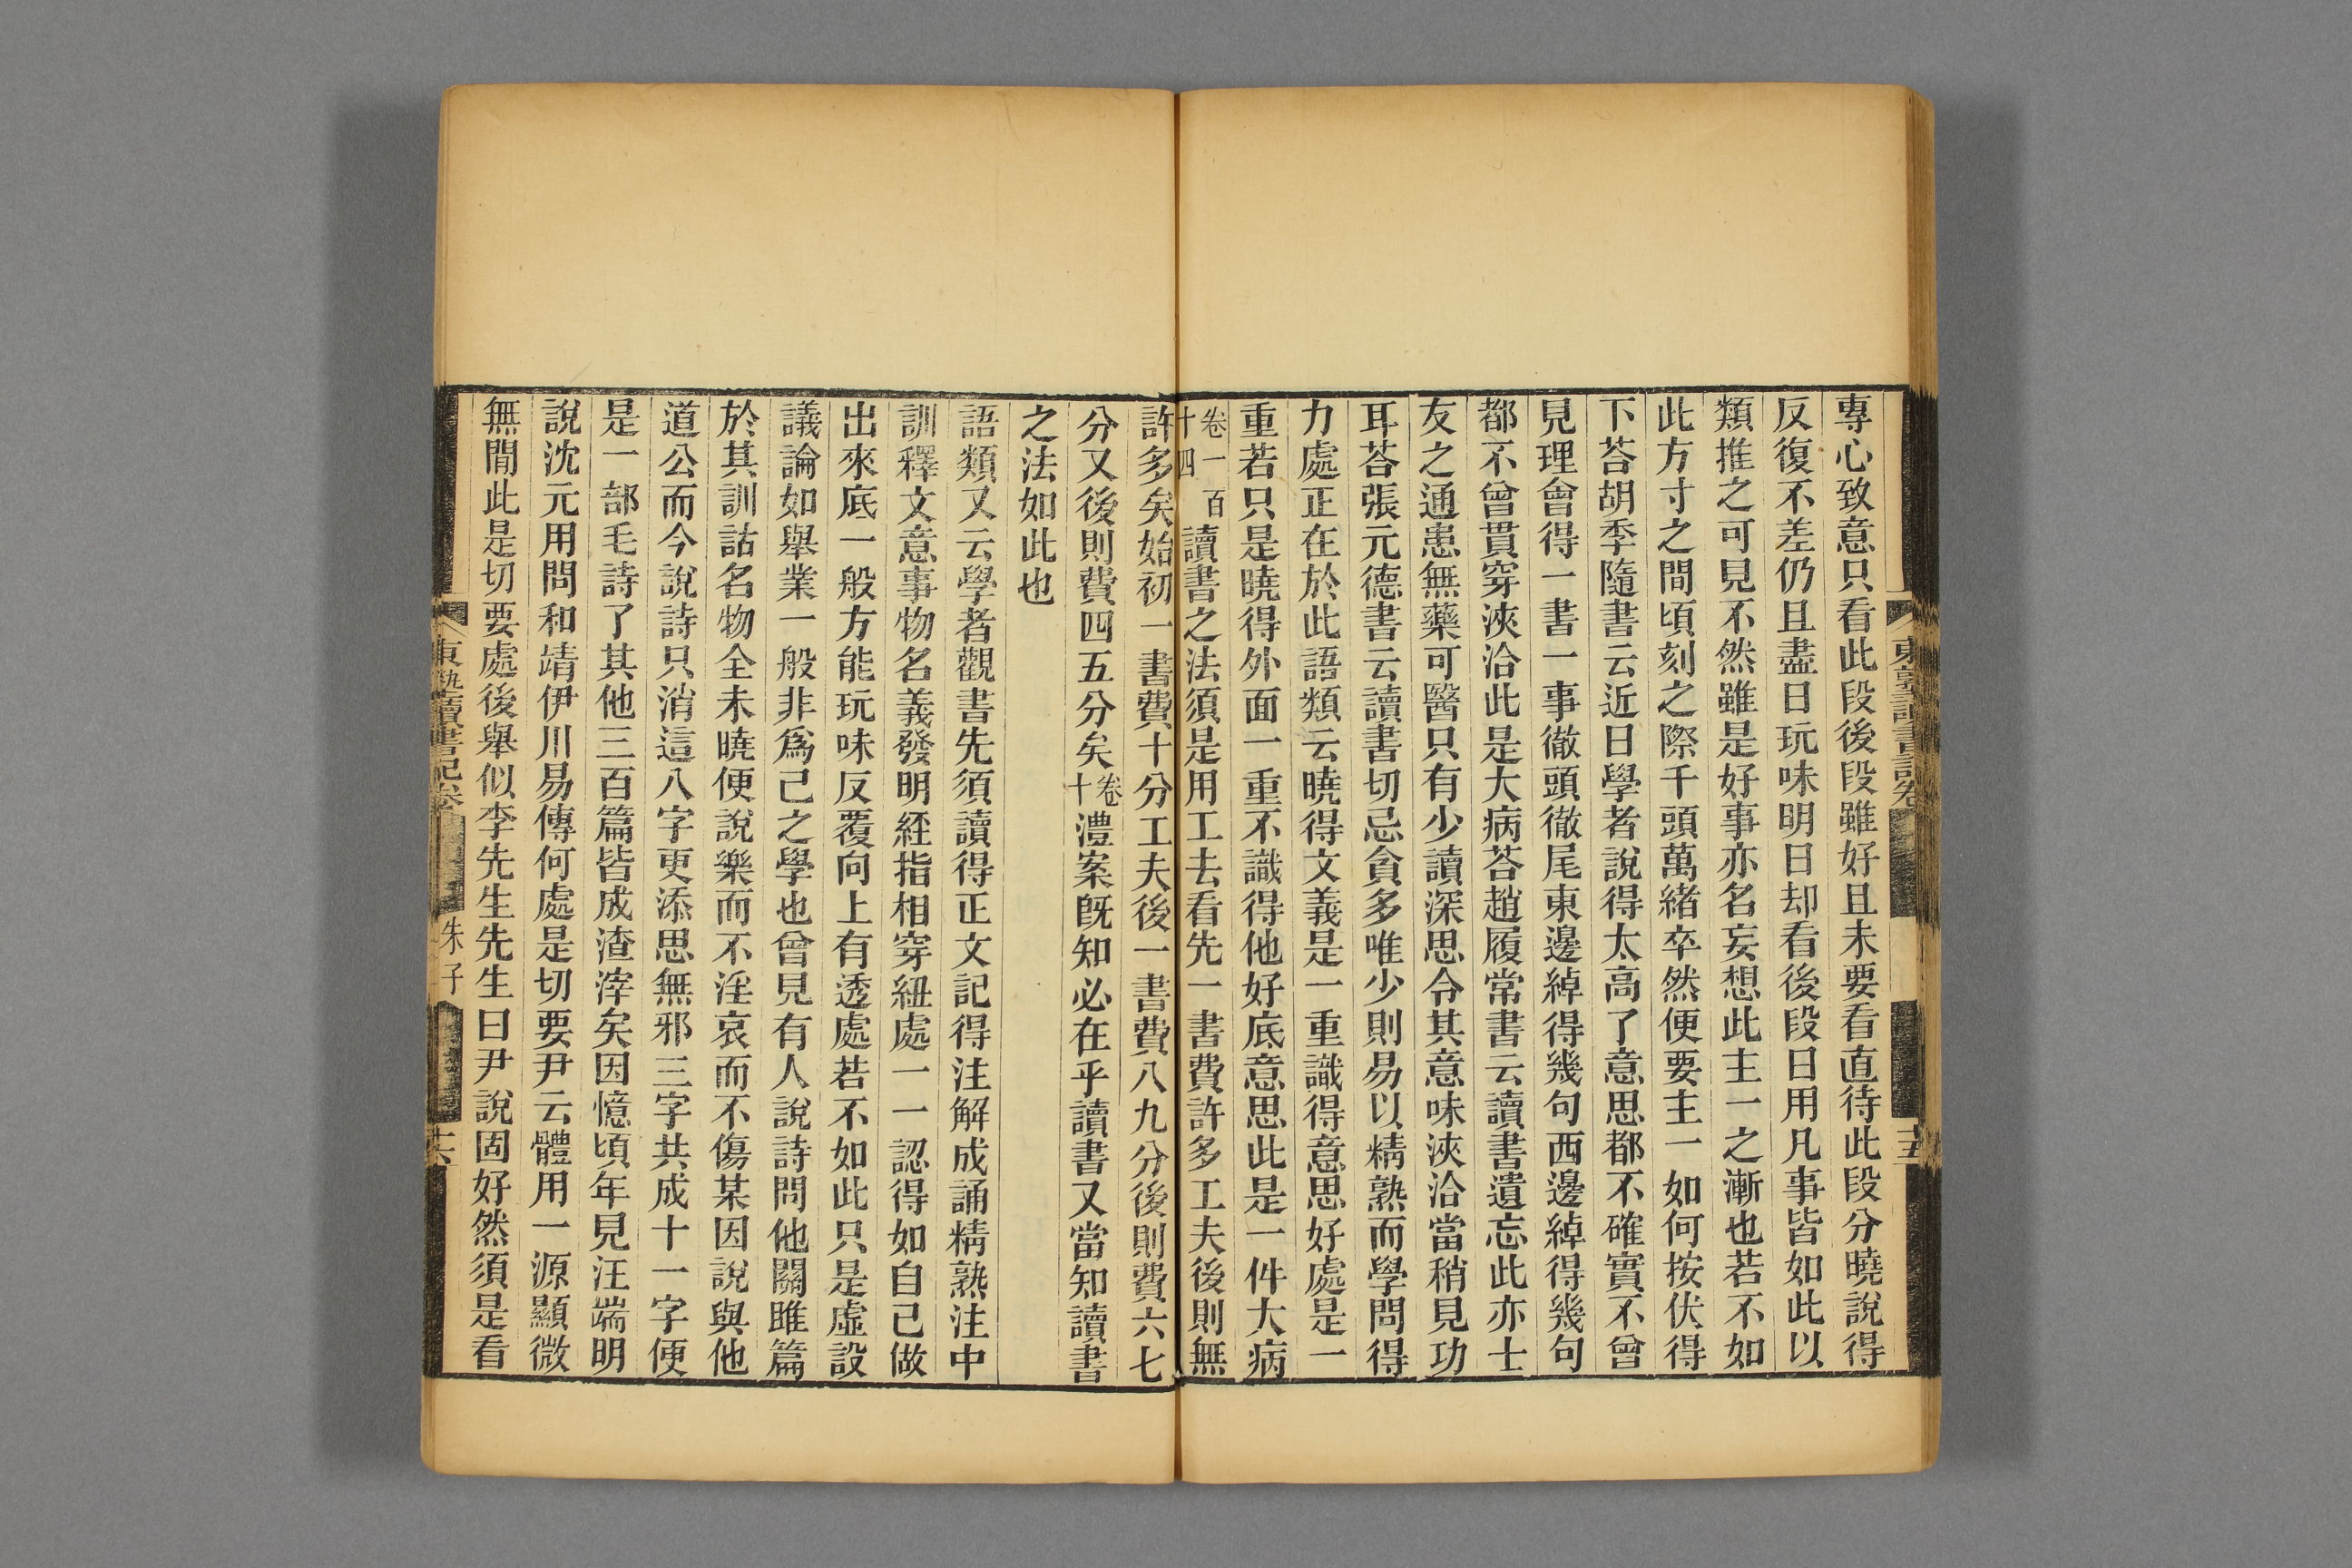 專心致意只看此段後段雖好且未要看直待此段分曉說得
反復不差仍且盡日玩味明日却看後段日用凡事皆如此以
類推之可見不然雖是好事亦名妄想此主一之漸也若不如
此方寸之間頃刻之際千頭萬緒卒然便要主一如何按伏得
下荅胡季隨書云近日學者說得太高了意思都不確實不曾
見理會得一書一事徹頭徹尾東邊綽得幾句西邊綽得幾句
都不曾貫穿浹洽此是大病荅趙履常書云讀書遺忘此亦士
友之通患無藥可醫只有少讀深思令其意味浹洽當稍見功
耳荅張元德書云讀書切忌貪多唯少則易以精熟而學問得
力處正在於此語類云曉得文義是一重識得意思好處是一
重若只是曉得外面一重不識得他好底意思此是一件大病
卷一百十四讀書之法須是用工去看先一書費許多工夫後則無
許多矣始初一書費十分工夫後一書費八九分後則費六七
分又後則費四五分矣卷十澧案既知必在乎讀書又當知讀書
之法如此也
語類又云學者觀書先須讀得正文記得注解成誦精熟注中
訓釋文意事物名義發明經指相穿紐處一一認得如自己做
出來底一般方能玩味反覆向上有透處若不如此只是虛設
議論如舉業一般非爲己之學也曾見有人說詩問他關雎篇
於其訓詁名物全未曉便說樂而不淫哀而不傷某因說與他
道公而今說詩只消這八字更添思無邪三字共成十一字便
是一部毛詩了其他三百篇皆成渣滓矣因憶頃年見汪端明
說沈元用問和靖伊川易傳何處是切要尹云體用一源顯微
無閒此是切要處後舉似李先生先生曰尹說固好然須是看
東塾讀書記卷
朱子
十六